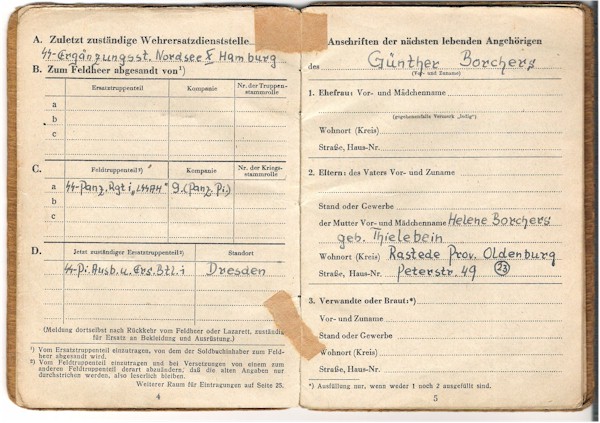 A. Zuletzt zuständige Wehrersatzdienststelle
SS-Ergänzungsst. Nordsee X Hamburg
B. Zum Feldheer abgesandt von¹)
Ersatztruppenteil
Kompanie
Nr. der Truppen-
stammrolle
a
b
c
C.
Feldtruppenteil²)
Kompanie
Nr. der Kriegs-
stammrolle
a SS-Panz. Rgt. 1 „LSSAH" 9. (Panz. Pi.)
b
c
D.
Jetzt zuständiger Ersatztruppenteil²)
Standort
SS-Pi. Ausb. u. Ers. Btl. 1 Dresden
(Meldung dortselbst nach Rückkehr vom Feldheer oder Lazarett, zuständig
für Ersatz an Bekleidung und Ausrüstung.)
¹) Vom Ersatztruppenteil einzutragen, von dem der Soldbuchinhaber zum Feld-
heer abgesandt wird.
²) Vom Feldtruppenteil einzutragen und bei Versetzungen von einem zum
anderen Feldtruppenteil derart abzuändern, daß die alten Angaben nur
durchstrichen werden, also leserlich bleiben.
Weiterer Raum für Eintragungen auf Seite 25.
4
Anschriften der nächsten lebenden Angehörigen
des Günther Borchers
(Vor- und Zuname)
1. Ehefrau: Vor- und Mädchenname
(gegebenenfalls Vermerk „ledig")
Wohnort (Kreis)
Straße, Haus-Nr.
2. Eltern: des Vaters Vor- und Zuname
Stand oder Gewerbe
der Mutter Vor- und Mädchenname Helene Borchers
geb. Thielebein
Wohnort (Kreis) Rastede Prov. Oldenburg
Straße, Haus-Nr. Peterstr. 49 (23)
3. Verwandte oder Braut:*)
Vor- und Zuname
Stand oder Gewerbe
Wohnort (Kreis)
Straße, Haus-Nr.
*) Ausfüllung nur, wenn weder 1 noch 2 ausgefüllt sind.
5